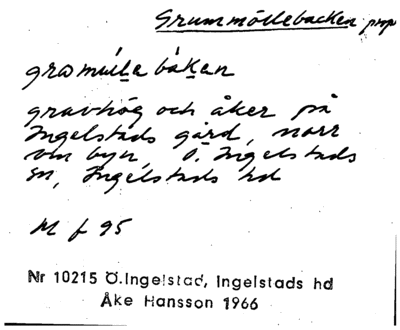 Grummöllebacken prop
gravhög och åker på
Ingelstads gård, norr
om byn, Ö. Ingelstads
sn, Ingelstads hd
M f 95
Nr 10215 Ö.Ingelstad, Ingelstads hd
Åke Hansson 1966